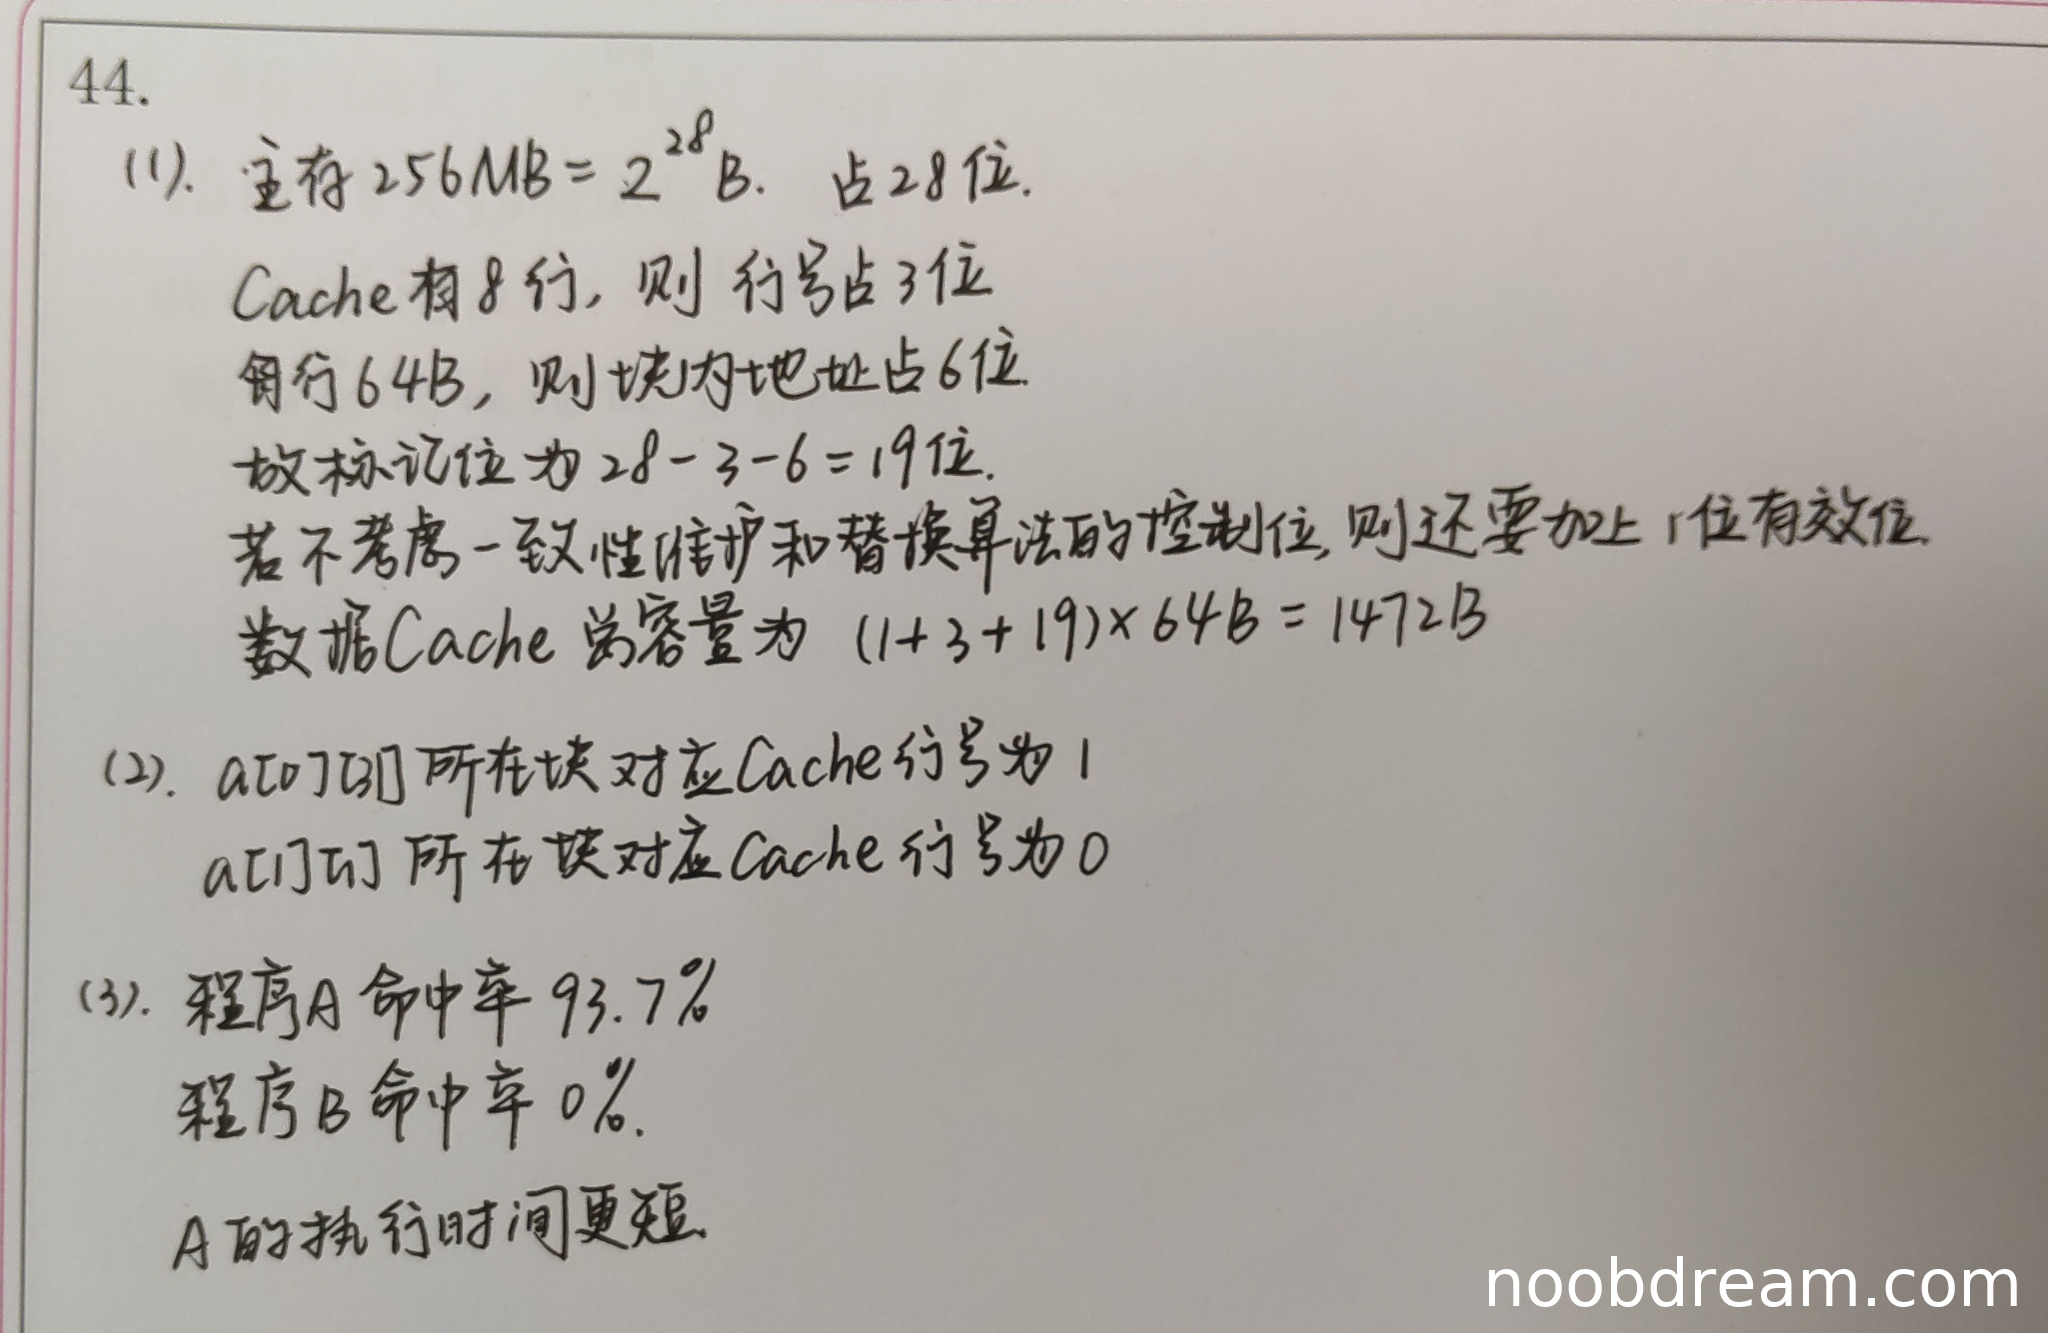 44.
(1). 主存256MB = 2^28 B. 占28位.
Cache有8行, 则 行号占3位
每行64B, 则块内地址占6位.
故标记位为 28-3-6=19位.
若不考虑一致性维护和替换算法的控制位, 则还要加上1位有效位.
数据Cache总容量为 (1+3+19)×64B = 1472B
(2). a[0][31] 所在块对应Cache行号为 1
a[1][1] 所在块对应Cache行号为 0
(3). 程序A 命中率 93.7%
程序B 命中率 0%.
A的执行时间更短.
noobdream.com